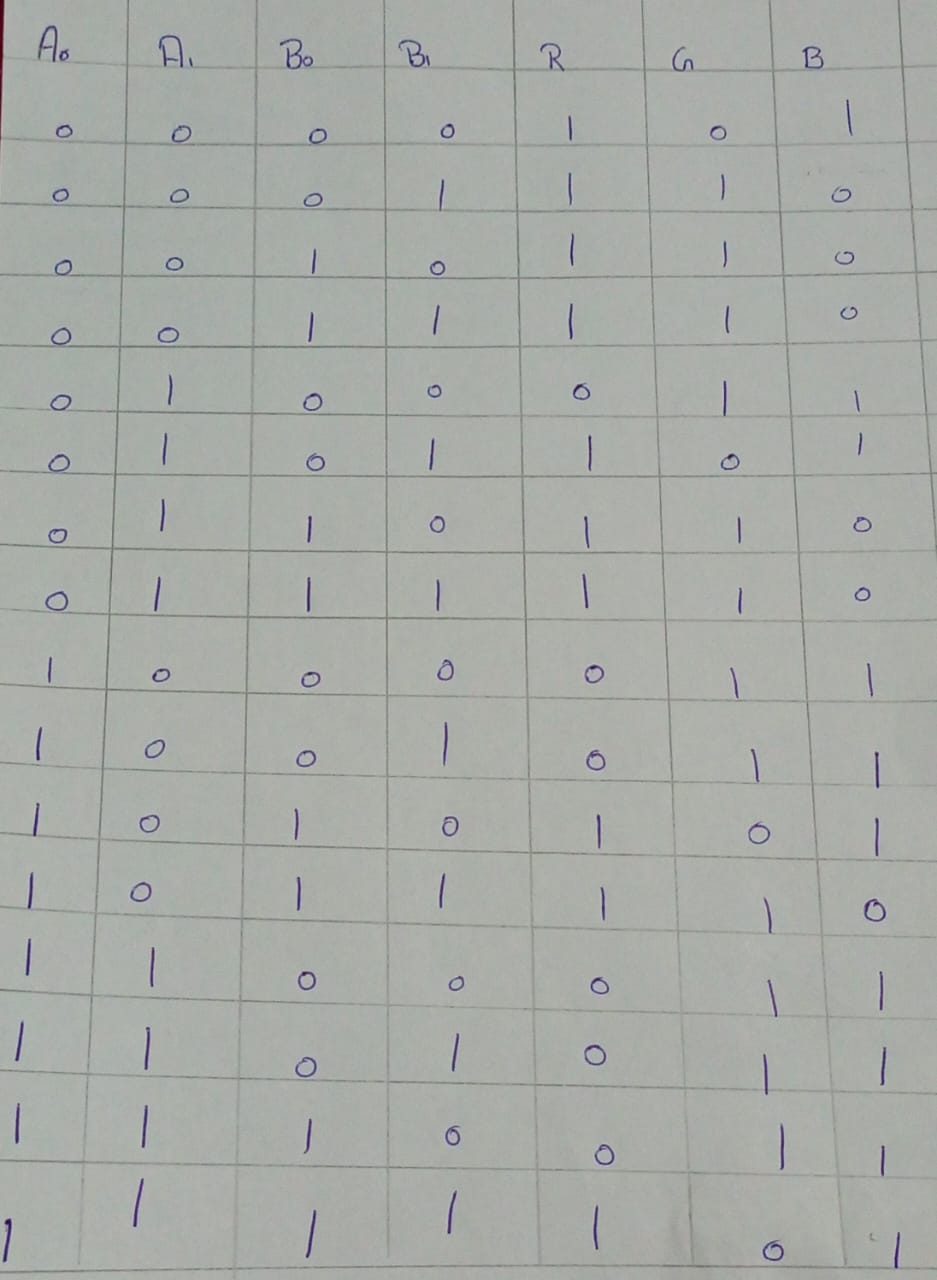 A₀ A₁ B₀ B₁ R G B
0 0 0 0 1 0 1
0 0 0 1 1 1 0
0 0 1 0 1 1 0
0 0 1 1 1 1 0
0 1 0 0 0 1 1
0 1 0 1 1 0 1
0 1 1 0 1 1 0
0 1 1 1 1 1 0
1 0 0 0 0 1 1
1 0 0 1 0 1 1
1 0 1 0 1 0 1
1 0 1 1 1 1 0
1 1 0 0 0 1 1
1 1 0 1 0 1 1
1 1 1 0 0 1 1
1 1 1 1 1 0 1